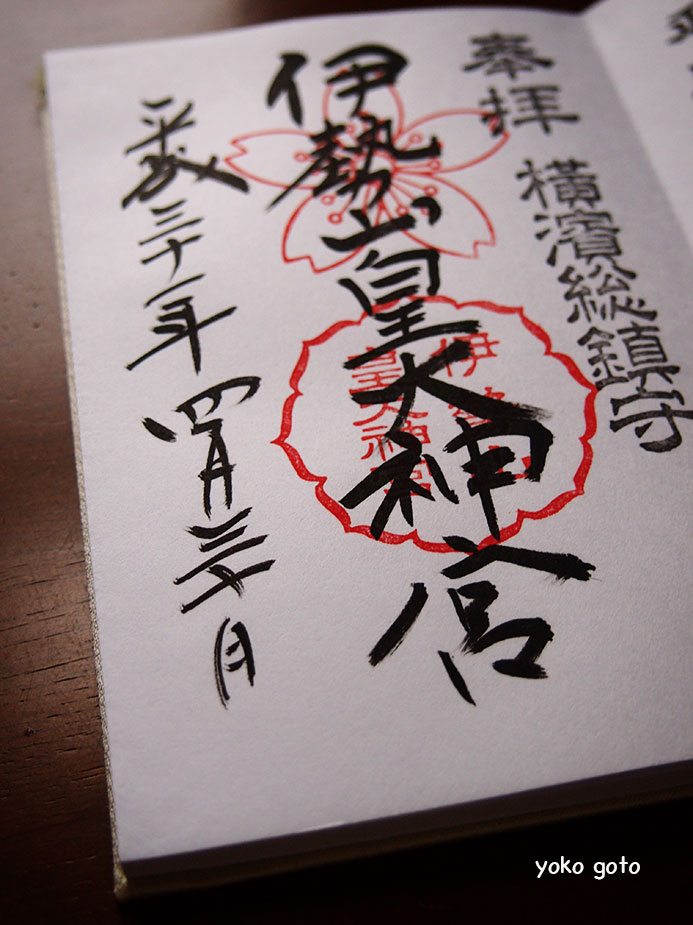 奉拝
横濱総鎮守
伊勢山皇大神宮
伊勢山
皇大神宮
平成三十一年四月三十日
yoko goto